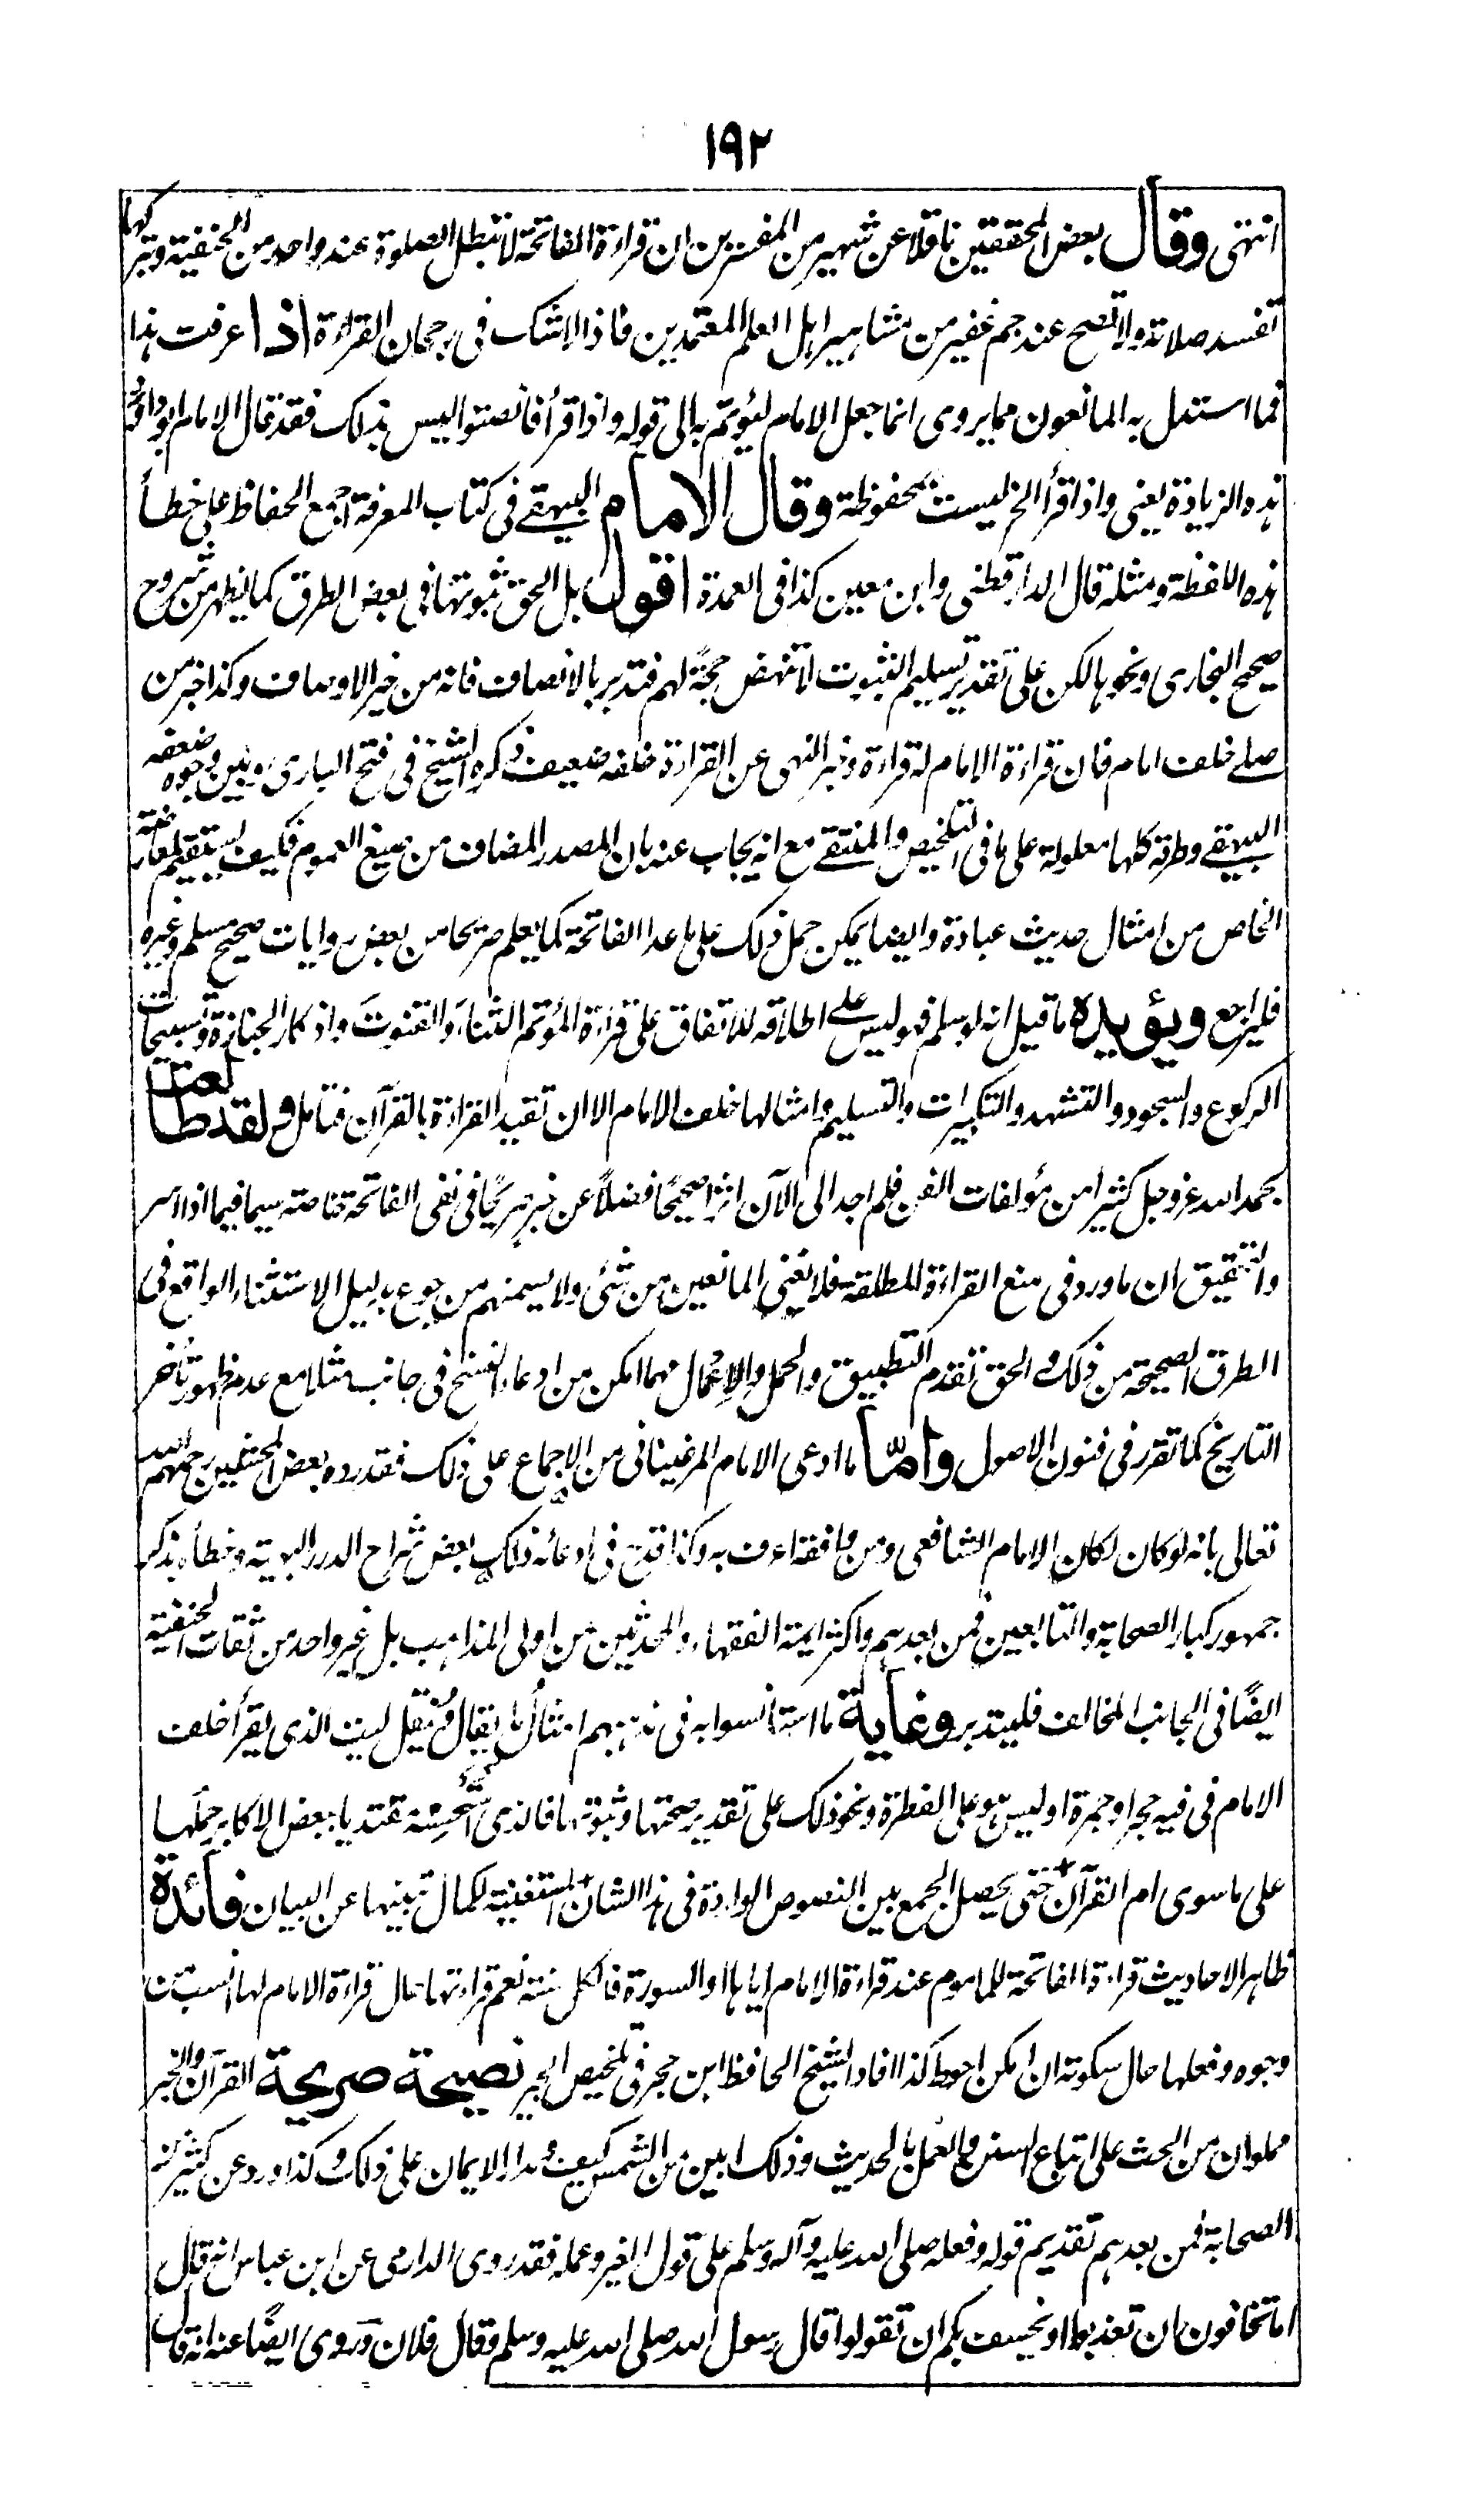 ١٩٢
انتهى وقال بعض المحققين ناقلا عن شهير من المفسرين ان قراءة الفاتحة لا تبطل الصلوة عند واحد من الحنفية وتركها
تفسد صلاته ولا تصح عند جم غفير من مشاهير اهل العلم المعتمدين فاذا لا شك فى رجحان القراءة اذا عرفت هذا
فما استدل به المانعون مما يروى انما جعل الامام ليؤتم به الى قوله واذا قرأ فانصتوا ليس بذلك فقد قال الامام ابو داؤد
هذه الزيادة يعنى واذا قرأ الخ ليست بمحفوظة وقال الامام البيهقے فى كتاب المعرفة اجمع الحفاظ على خطأ
هذه اللفظة ومثله قال الدارقطنى وابن معين كذا فى العمدة اقول بل الحق ثبوتها فى بعض الطرق كما يظهر من شروح
صحيح البخارى ونحوها لكن على تقدير تسليم الثبوت لا تنهض حجة لهم فتدبر بالانصاف فانه من خير الاوصاف وكذا خبر من
صلے خلف امام فان قراءة الامام له قراءة وخبر النهى عن القراءة خلفه ضعيف ذكره الشيخ فى فتح البارى وبين وجوه ضعفه
البيهقے وطرقه كلها معلولة على ما فى التلخيص والمنتقے مع انه يجاب عنه بان المصدر المضاف من صيغ العموم فكيف يستقيم لمعارضته
الخاص من امثال حديث عبادة وايضا يمكن حمل ذلك على ما عدا الفاتحة كما يعلم صريحا من بعض روايات صحيح مسلم وغيره
فليراجع ويؤيده ما قيل انه لو سلم فهو ليس علے اطلاقه للاتفاق على قراءة المؤتم الثناء والقنوت واذكار الجنازة وتسبيحات
الركوع والسجود والتشهد والتكبيرات والتسليم وامثالها خلف الامام الا ان تقيد القراءة بالقرآن فتأمل ولقد طالعت
بحمد الله عز وجل كثيرا من مؤلفات الفن فلم اجد الى الآن اثرا صحيحًا فضلاً عن خبر صريحًا فى نفى الفاتحة خاصة سيما فيما اذا اسر
والتحقيق ان ما ورد فى منع القراءة المطلقة فلا يغنى المانعين من شئ ولا يسمنهم من جوع بدليل الاستثناء الواقع فى
الطرق الصحيحة من ذلك والحق تقدم التطبيق والحمل والاعمال مهما امكن من ادعاء النسخ فى جانب مثلا مع عدم ظهور تأخر
التاريخ كما تقرر فى فنون الاصول وامّا ما ادعى الامام المرغينانى من الاجماع على ذلك فقد رده بعض المحققين رحمهم الله
تعالى بانه لو كان لكان الامام الشافعى ومن وافقه اعرف به وكذا قدح فى ادعائه ذلك بعض شراح الدرر البهية وخطأه بذكر
جمهور كبار الصحابة والتابعين فمن بعدهم واكثر ايمة الفقهاء والمحدثين من اولى المذاهب بل غير واحد من ثقات الحنفية
ايضًا فى الجانب المخالف فليتدبر وغاية ما استأنسوا به فى مذهبهم امثال ما يقال وينقل ليت الذى يقرأ خلف
الامام فى فيه حجرا وجمرة او ليس هو على الفطرة ونحو ذلك على تقدير صحتها وثبوتها فالذى نستحسنه مقتديا ببعض الاكابر حملها
على ما سوى ام القرآن حتى يحصل الجمع بين النصوص الواردة فى هذا الشان المستغنية لكمال تبينها عن البيان فائدة
ظاهر الاحاديث قراءة الفاتحة للماموم عند قراءة الامام اياها او السورة فالكل سنة نعم قراءتها حال قراءة الامام لها انسب من
وجوه وفعلها حال سكوته ان امكن احوط كذا افاد الشيخ الحافظ ابن حجر فى تلخيص الحبير نصيحة صريحة القرآن والخبر
مملوان من الحث على اتباع السنن والعمل بالحديث وذلك ابين من الشمس كيف ومدار الايمان على ذلك وكذا ورد عن كثير من
الصحابة فمن بعدهم تقديم قوله وفعله صلى الله عليه وآله وسلم على قول الغير وعمله فقد روى الدارمى عن ابن عباس انه قال
اما تخافون ان تعذبوا او يخسف بكم ان تقولوا قال رسول الله صلى الله عليه وسلم وقال فلان وروى ايضًا عنه انه قال